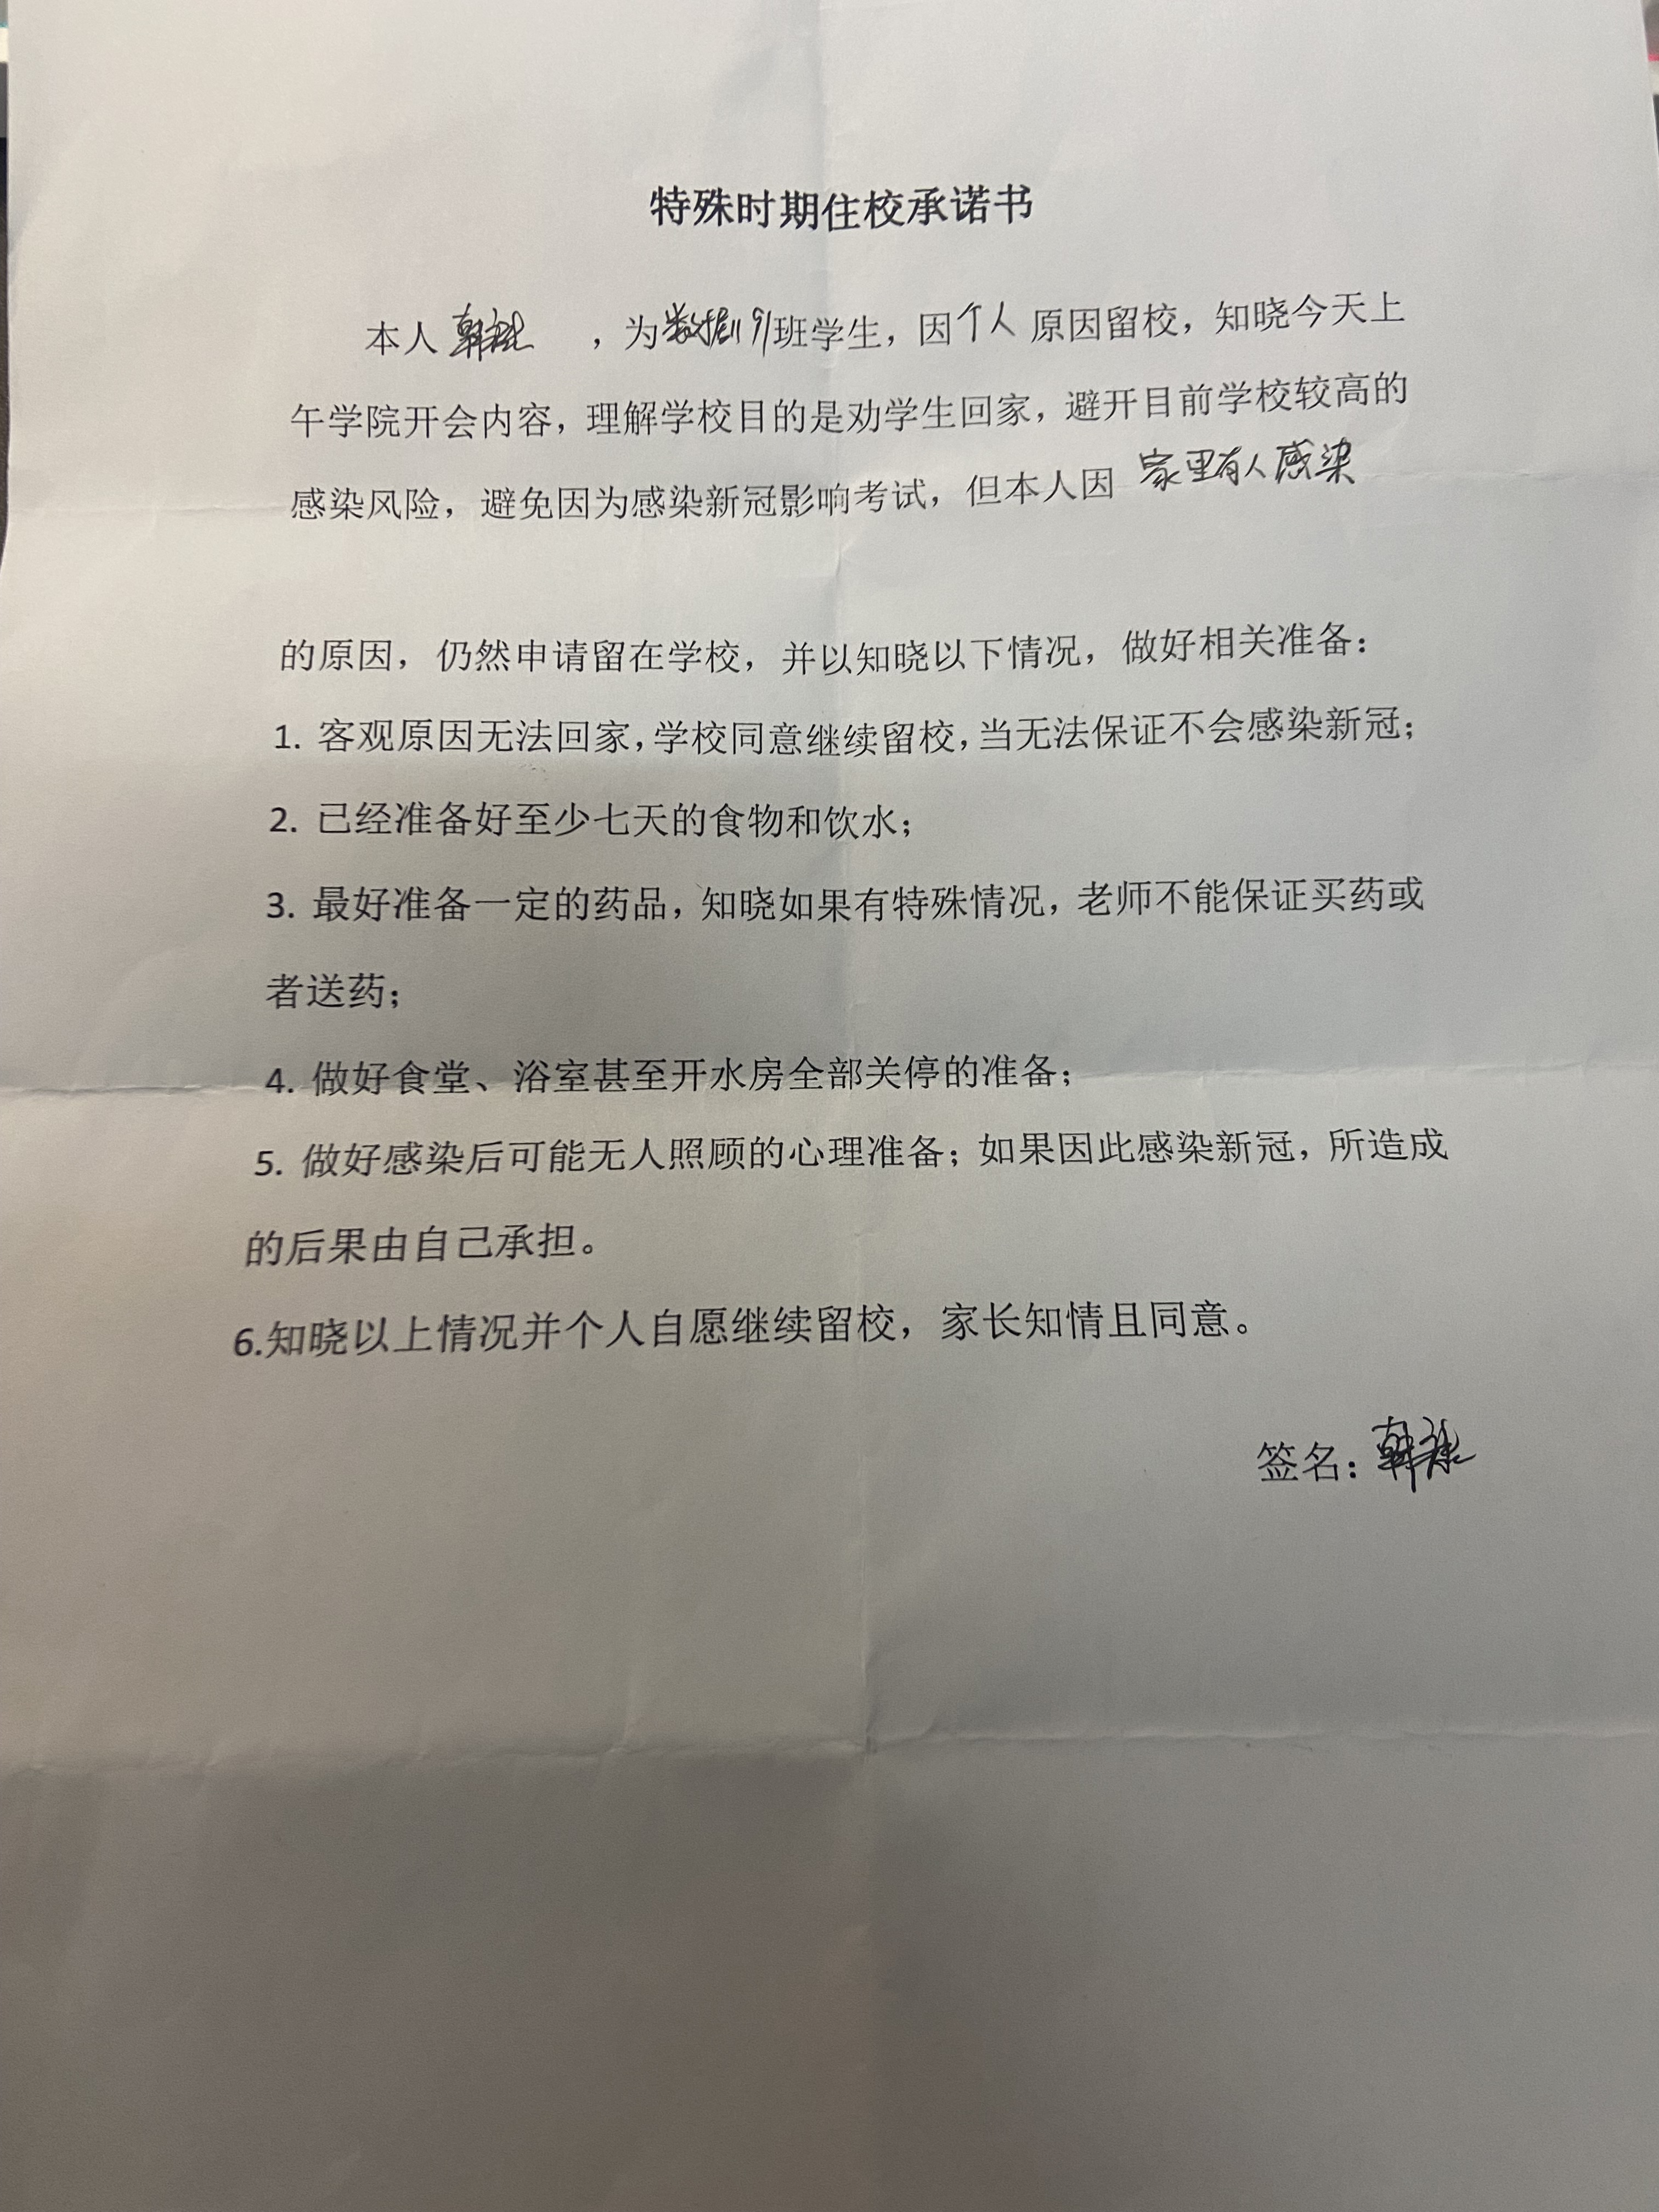 特殊时期住校承诺书
本人 韩 ，为数据191班学生，因个人原因留校，知晓今天上
午学院开会内容，理解学校目的是劝学生回家，避开目前学校较高的
感染风险，避免因为感染新冠影响考试，但本人因 家里有人感染
的原因，仍然申请留在学校，并以知晓以下情况，做好相关准备：
1. 客观原因无法回家，学校同意继续留校，当无法保证不会感染新冠；
2. 已经准备好至少七天的食物和饮水；
3. 最好准备一定的药品，知晓如果有特殊情况，老师不能保证买药或
者送药；
4. 做好食堂、浴室甚至开水房全部关停的准备；
5. 做好感染后可能无人照顾的心理准备；如果因此感染新冠，所造成
的后果由自己承担。
6.知晓以上情况并个人自愿继续留校，家长知情且同意。
签名：韩